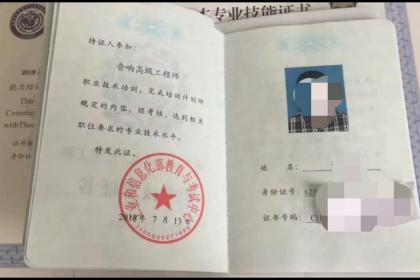 本专业技能证书
2018
能力培训
This
Commi
withThe
身份证
持证人参加:
音响高级工程师
职业技术培训,完成培训计划所
规定的内容,经考核,达到相关
职位要求的专业技术水平。
特发此证。
业和信息化部教育与考试中心
2018年 7月 13日
姓 名:
身份证号: 620
证书号码: C